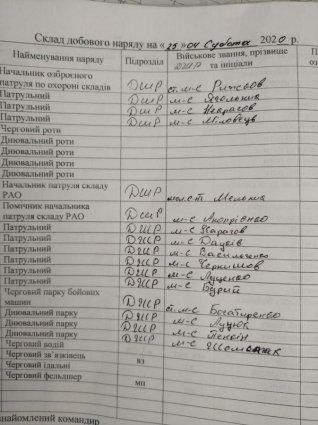 Склад добового наряду на «25» 04 Субота 2020 р.
Найменування наряду Підрозділ Військове звання, прізвище та ініціали
Начальник озброєного патруля по охороні складів ДШР ст. м-с
Патрульний ДШР м-с
Патрульний ДШР м-с Некрасов
Патрульний ДШР м-с
Черговий роти
Днювальний роти
Днювальний роти
Днювальний роти
Начальник патруля складу РАО ДШР мол. с-т Мельник
Помічник начальника патруля складу РАО ДШР м-с
Патрульний ДШР м-с
Патрульний ДШР м-с Дацків
Патрульний ДШР м-с Василаченко
Патрульний ДШР м-с Чернишов
Патрульний ДШР м-с Луценко
Патрульний ДШР м-с Бурий
Черговий парку бойових машин ДШР ст. м-с Богатиренко
Днювальний парку ДШР м-с Луцюк
Днювальний парку ДШР м-с
Днювальний парку ДШР м-с
Черговий водій
Черговий зв'язковець вз
Черговий їдальні
Черговий фельдшер мп
командир